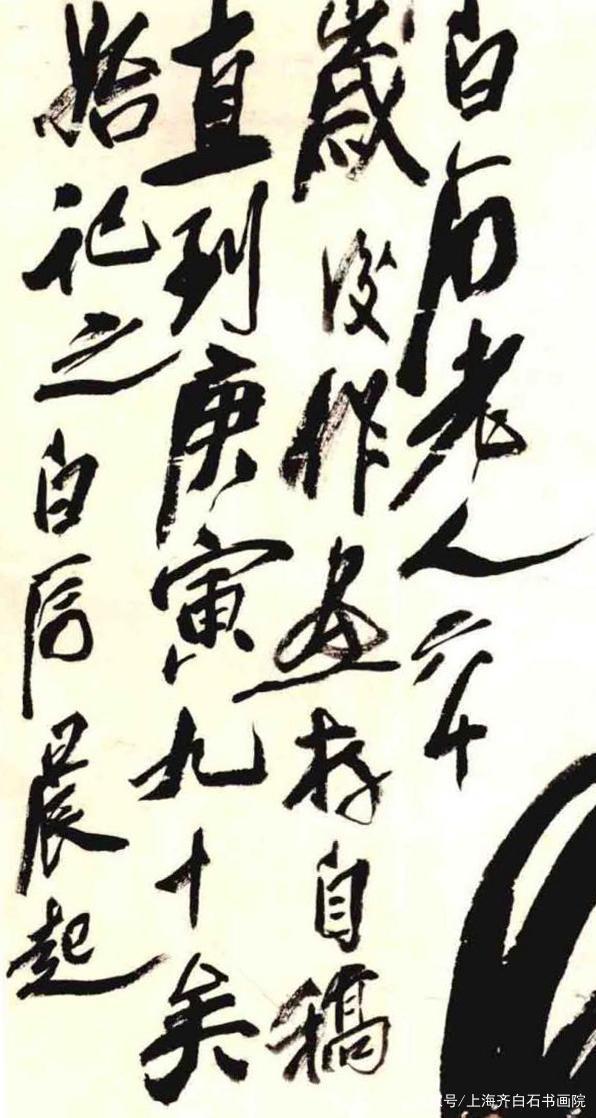 白石老人六十
歲後作畫存自稿
直到庚寅九十矣
始記之白石晨起
号/上海齐白石书画院